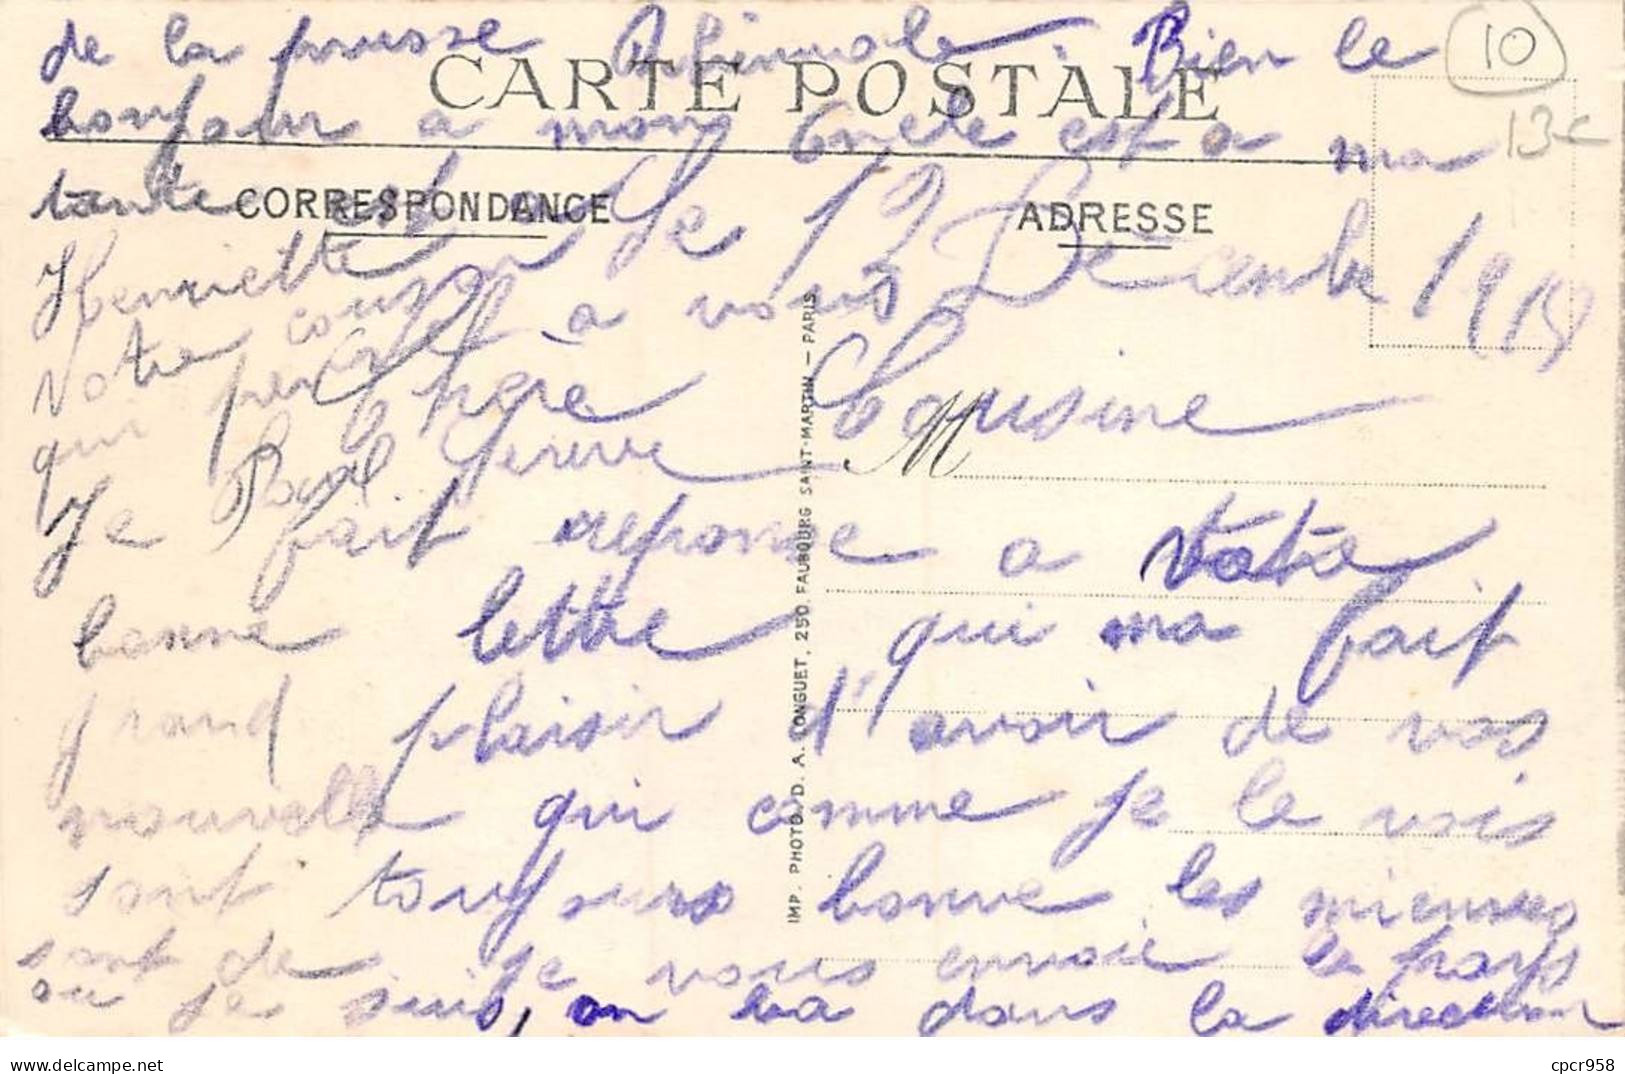 de la prusse Rhinnale. Bien le
bonjour a mon Oncle est a ma
tante est a
Henriette
votre couzon
qui pense a vous
Paul
10
13c
CARTE POSTALE
CORRESPONDANCE
ADRESSE
M
IMP. PHOTO. D. A. LONGUET, 250, FAUBOURG SAINT-MARTIN — PARIS
Le 12 Decembre 1918
Chere Cousine
Je fait reponse a votre
bonne lettre qui ma fait
grand plaisir d'avoir de vos
nouvelle qui comme je le vois
sont toujours bonne les miennes
sont de je vous envoie le pays
ou je suis, on va dans la direction
cpcr958